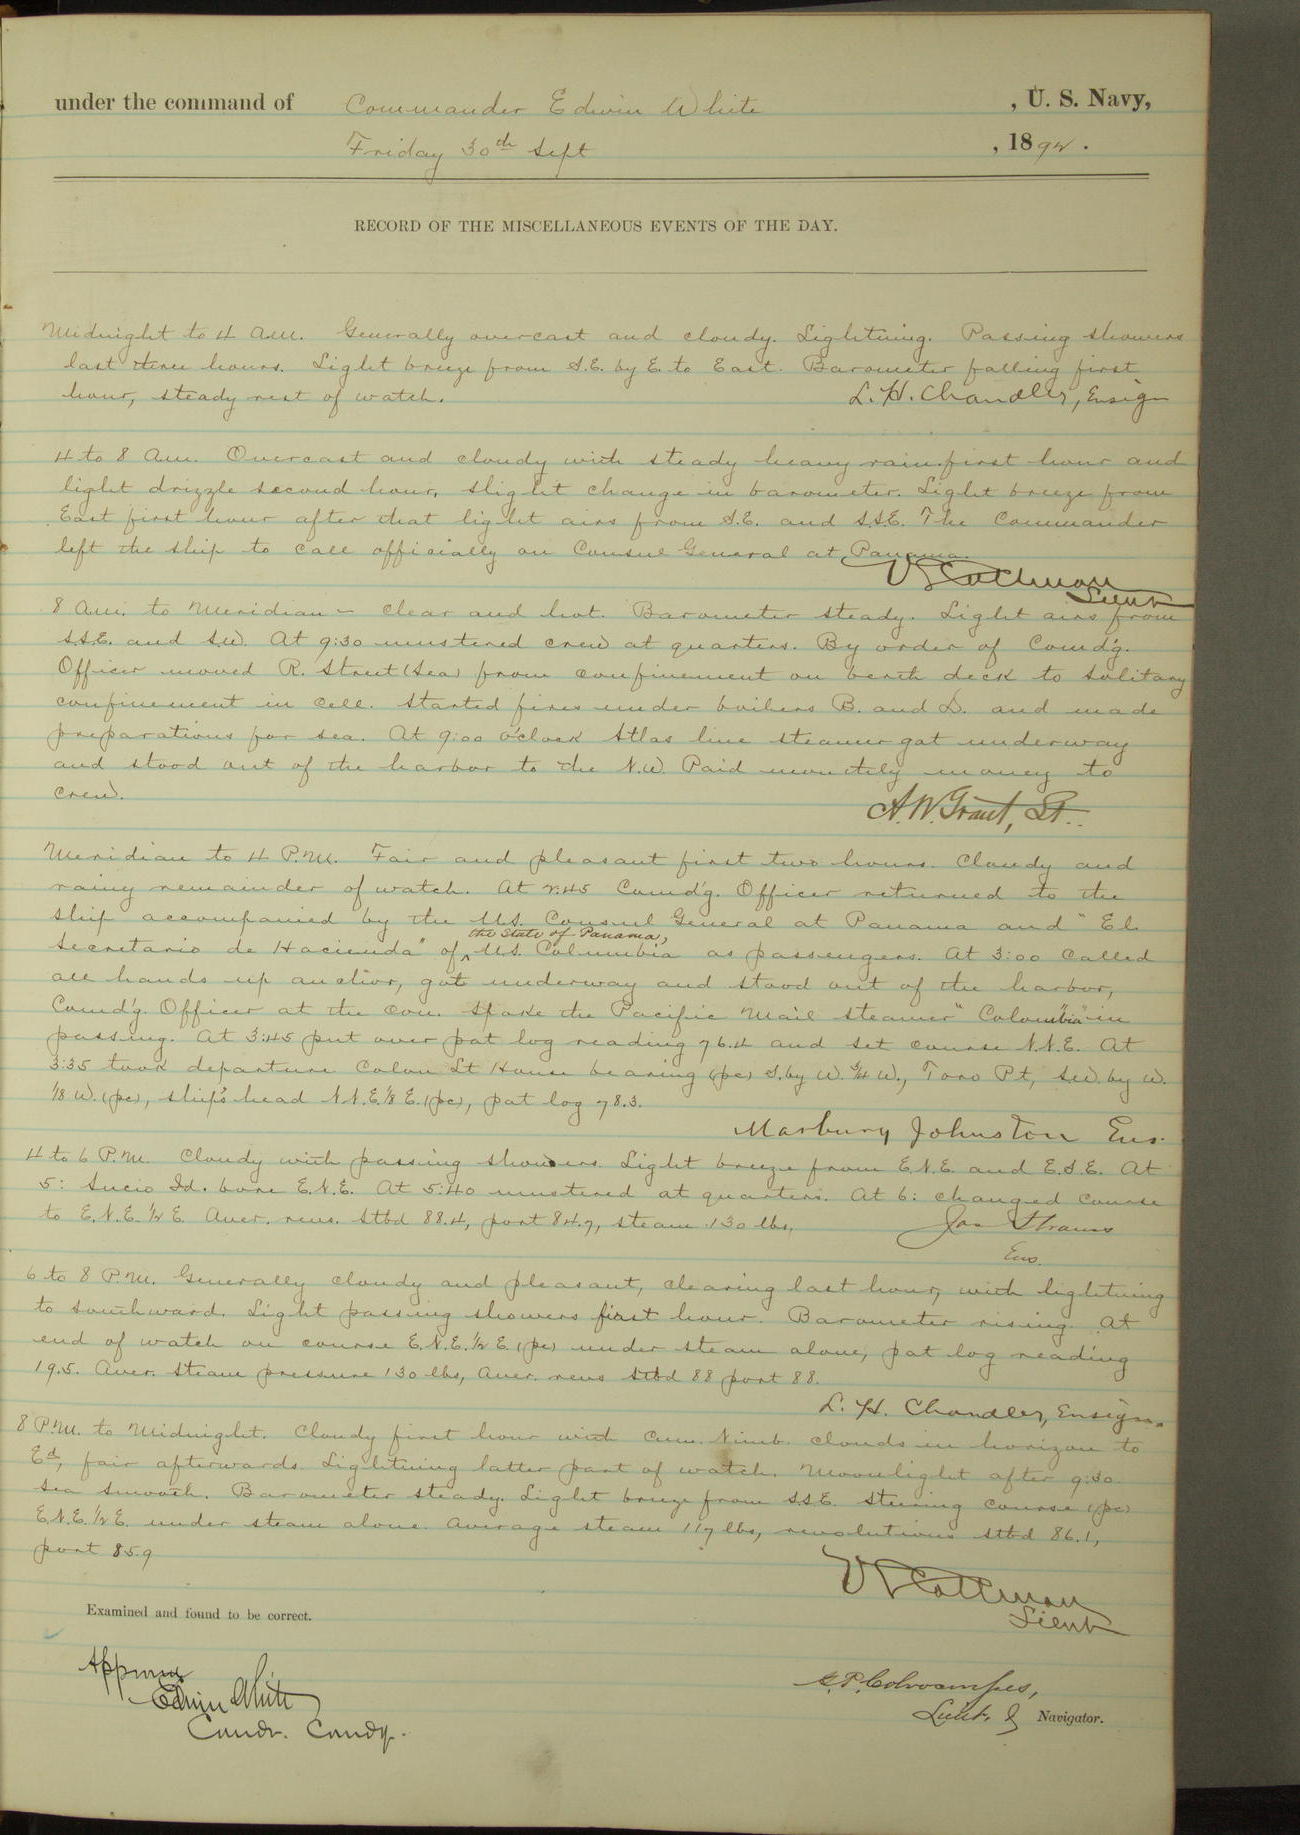 under the command of Commander Edwin White , U. S. Navy,
Friday 30th Sept , 1892.
RECORD OF THE MISCELLANEOUS EVENTS OF THE DAY.
Midnight to 4 a.m. Generally overcast and cloudy. Lightning. Passing showers
last three hours. Light breeze from S.E. by E. to East. Barometer falling first
hour, steady rest of watch. L. H. Chandler, Ensign
4 to 8 a.m. Overcast and cloudy with steady heavy rain first hour and
light drizzle second hour, slight change in barometer. Light breeze from
East first hour after that light airs from S.E. and S.S.E. The Commander
left the ship to call officially on Consul General at Panama.
V S Cottman
Lieut
8 a.m. to Meridian – Clear and hot. Barometer steady. Light airs from
S.S.E. and S.W. At 9:30 mustered crew at quarters. By order of Comd'g.
Officer moved R. Street (Sea) from confinement on berth deck to solitary
confinement in cell. Started fires under boilers B. and D. and made
preparations for sea. At 9:00 o'clock Atlas line steamer got underway
and stood out of the harbor to the N.W. Paid monthly money to
crew. A. W. Grant, Lt..
Meridian to 4 P.M. Fair and pleasant first two hours. Cloudy and
rainy remainder of watch. At 2:45 Comd'g. Officer returned to the
ship accompanied by the U.S. Consul General at Panama and "El
the State of Panama,
Secretario de Hacienda" of ^ U.S. Columbia as passengers. At 3:00 called
all hands up anchor, got underway and stood out of the harbor,
Comd'g. Officer at the con. Spoke the Pacific Mail Steamer "Colombia" in
passing. At 3:45 put over pat log reading 76.4 and set course N.N.E. At
3:35 took departure Colon Lt House bearing (pc) S. by W. 3/4 W., Toro Pt, S.W. by W.
1/8 W. (pc), ship's head N.N.E. 1/8 E. (pc), pat log 78.3.
Marbury Johnston Ens.
4 to 6 P.M. Cloudy with passing showers. Light breeze from E.N.E. and E.S.E. At
5: Sucio Id. bore E.N.E. At 5:40 mustered at quarters. At 6: changed course
to E.N.E. 1/2 E. Aver. revs. Stbd 88.4, port 84.7, steam 130 lbs,
Jos Strauss
Ens.
6 to 8 P.M. Generally cloudy and pleasant, clearing last hour, with lightning
to southward. Light passing showers first hour. Barometer rising. At
end of watch on course E.N.E. 1/2 E. (pc) under steam alone, pat log reading
19.5. Aver. steam pressure 130 lbs, Aver. revs Stbd 88 port 88.
L. H. Chandler, Ensign.
8 P.M. to Midnight. Cloudy first hour with Cum. Nimb. clouds in horizon to
Ed, fair afterwards. Lightning latter part of watch. Moonlight after 9:30.
Sea smooth. Barometer steady. Light breeze from S.S.E. Steering course (pc)
E.N.E. 1/2 E. under steam alone. Average steam 117 lbs, revolutions stbd 86.1,
port 85.9
V S Cottman
Lieut
Examined and found to be correct.
Approved
Edwin White
Comdr. Comdg.
G. P. Colvocoresses,
Lieut. & Navigator.